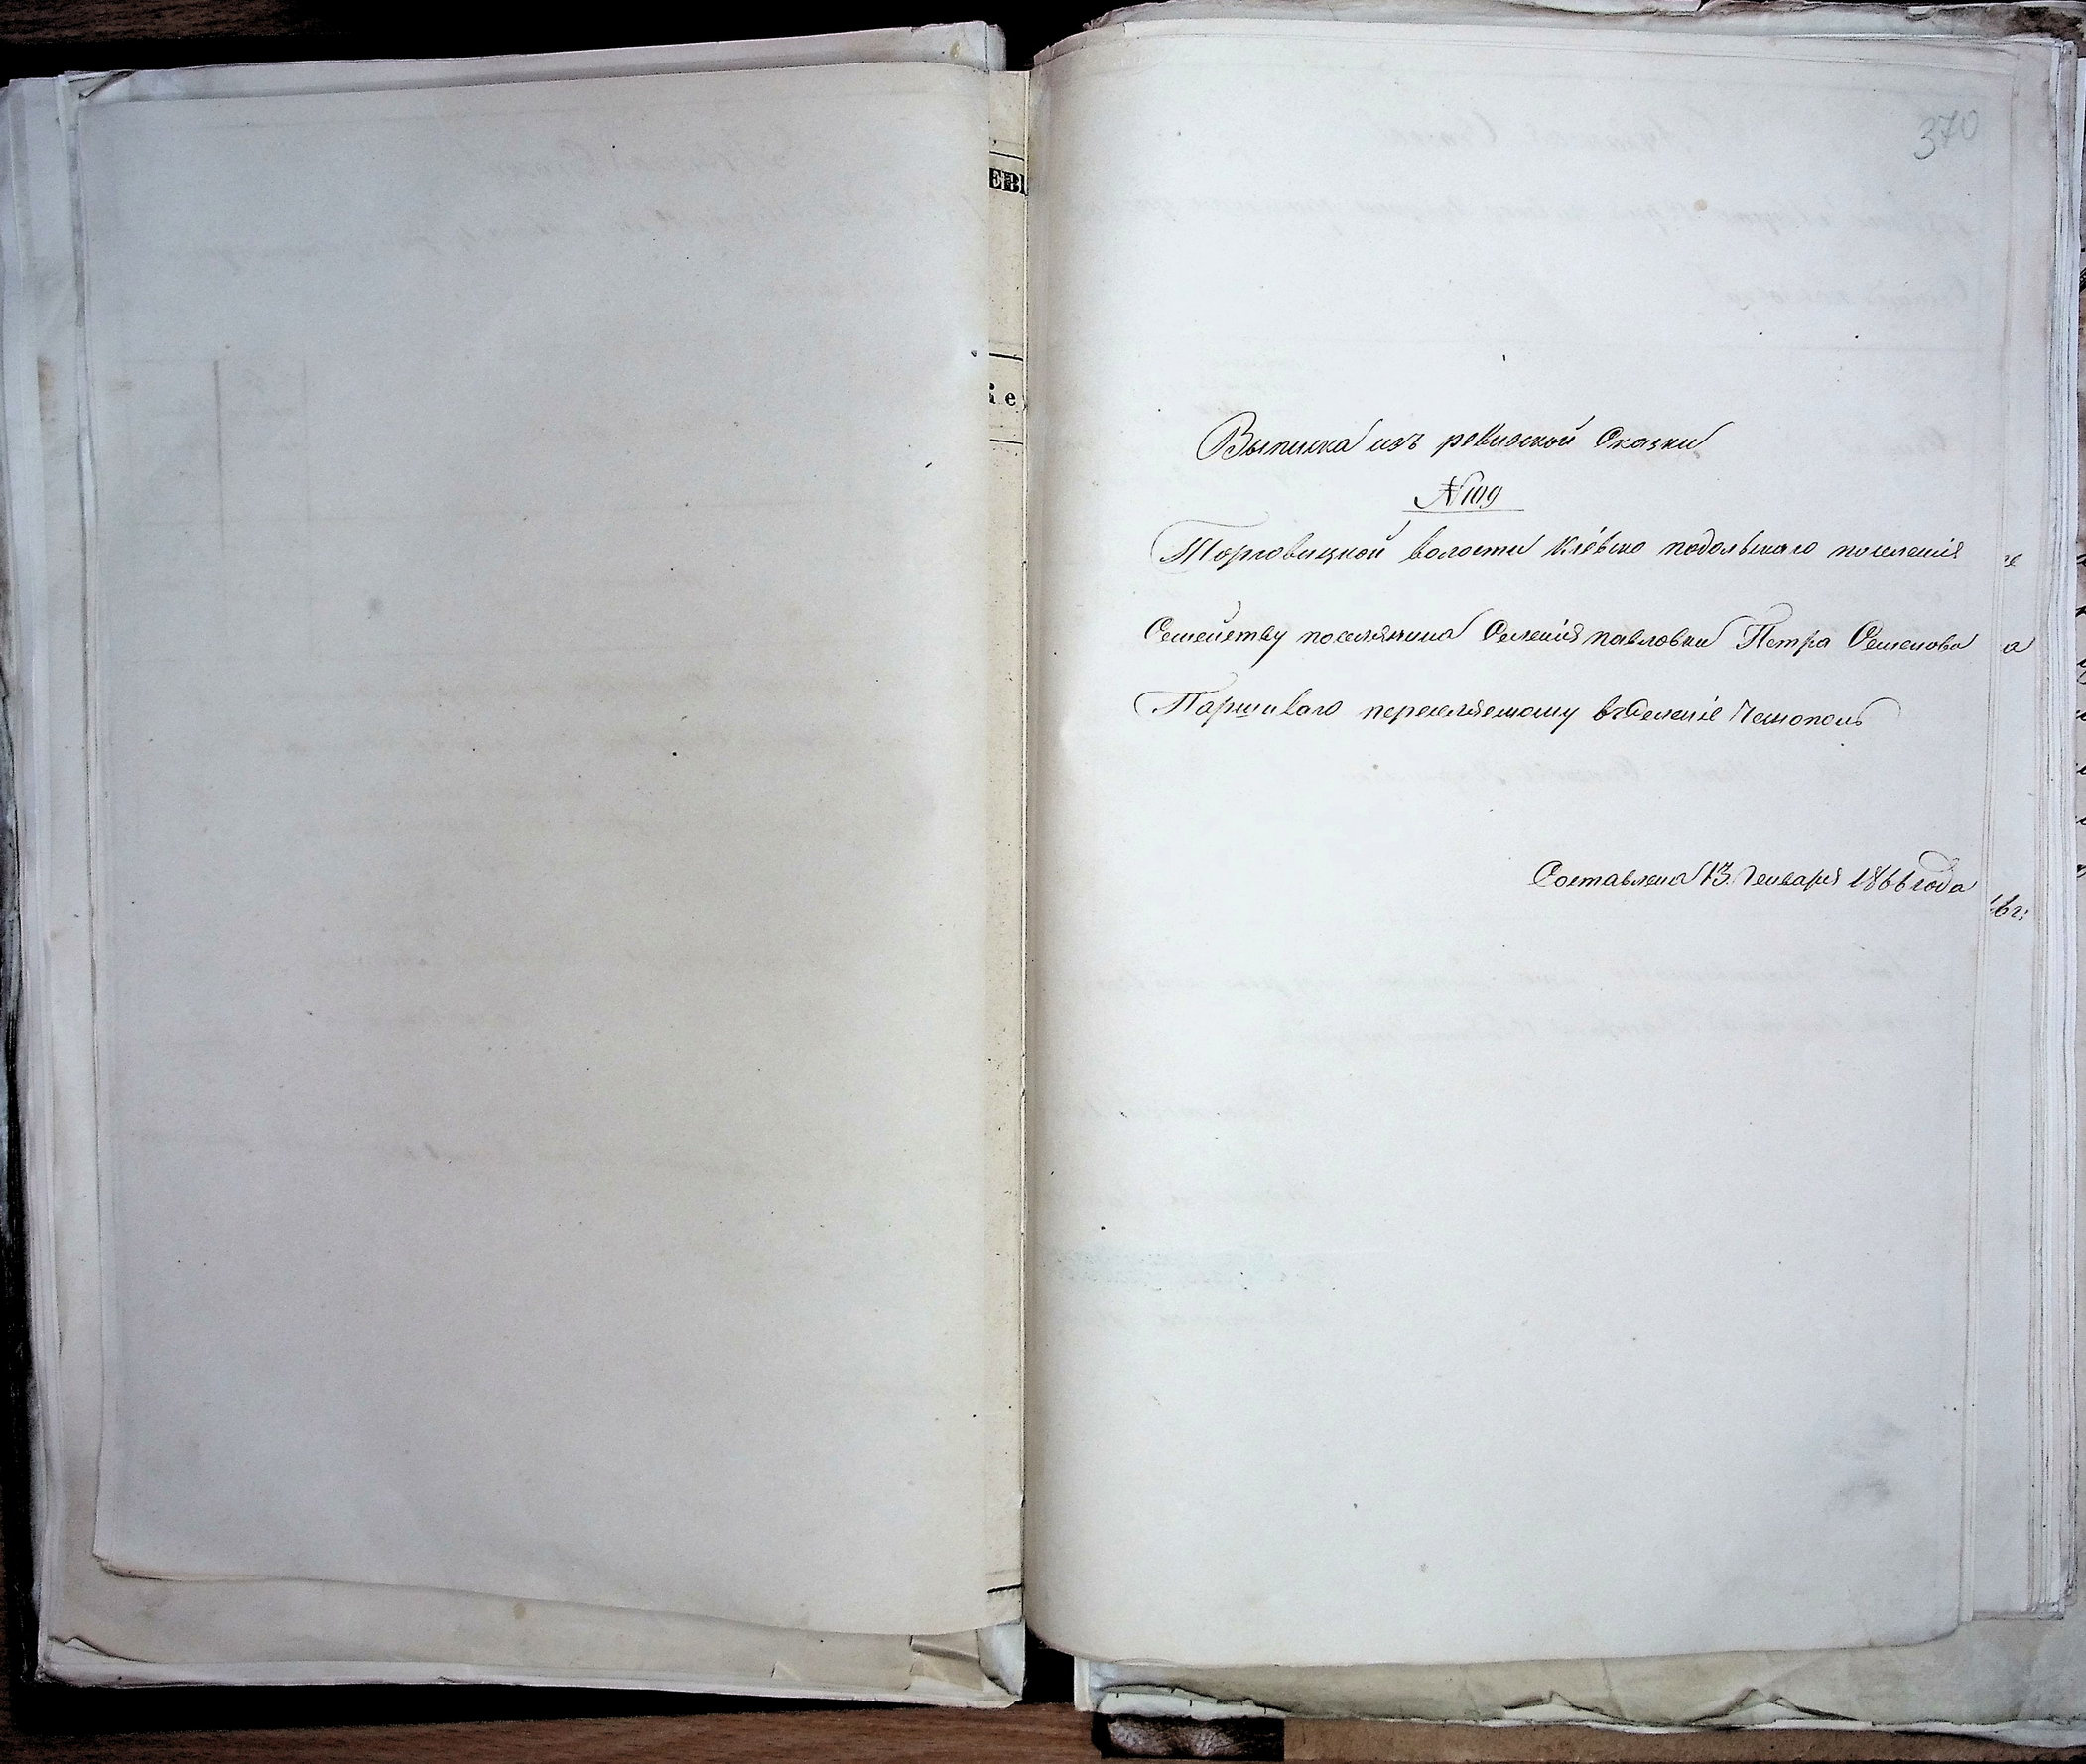 370
Выписка изъ ревиской Сказки
№ 109
Торговицкой волости Кіевско подольскаго поселенія
Семейству поселянина Селенія павловки Петра Семенова
Паршиваго переселяемому в Селеніе
Составлена 13. Генваря 1866 года